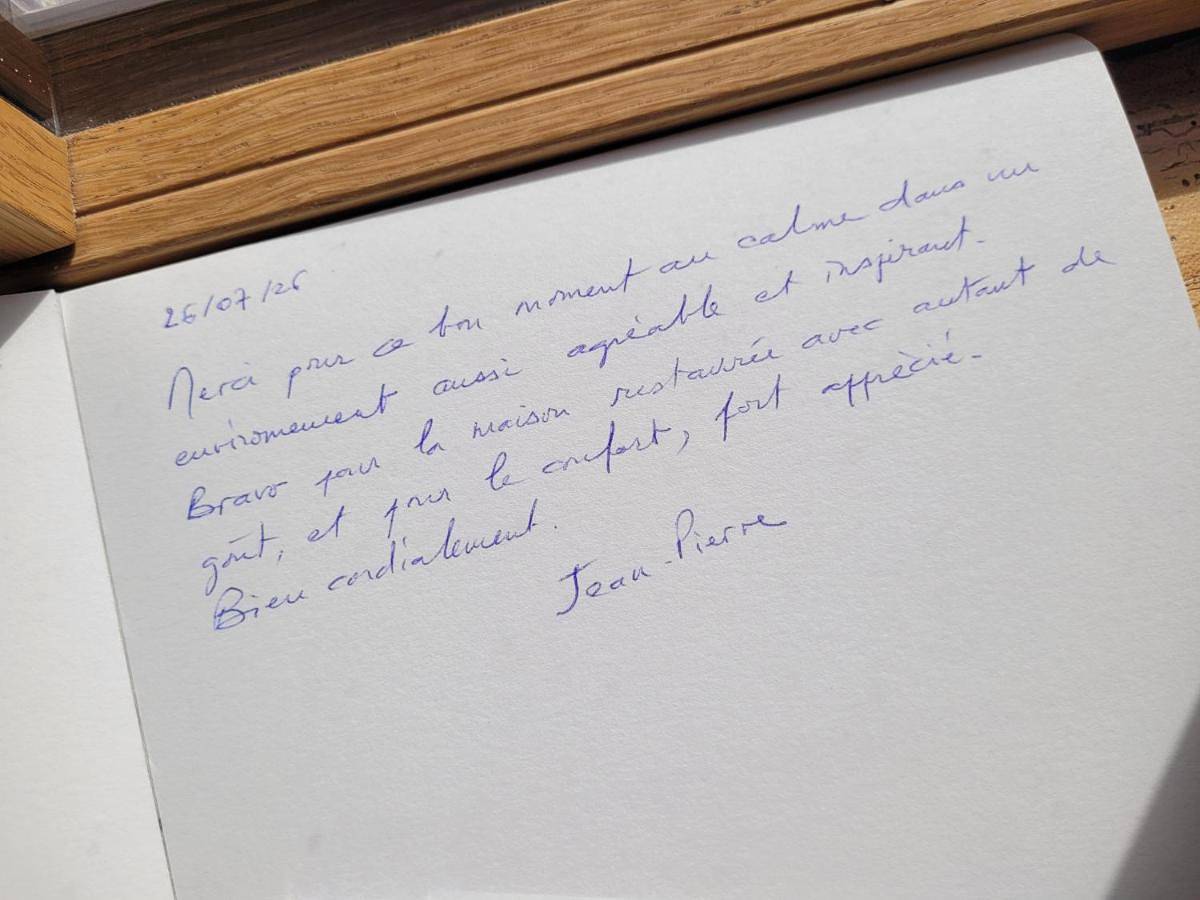 26/07/26
Merci pour ce bon moment au calme dans un
environnement aussi agréable et inspirant.
Bravo pour la maison restaurée avec autant de
goût, et pour le confort, fort apprécié.
Bien cordialement.
Jean-Pierre